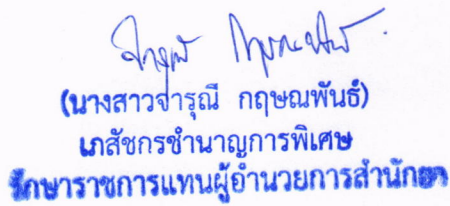 จารุณี กฤษณพันธ์
(นางสาวจารุณี กฤษณพันธ์)
เภสัชกรชำนาญการพิเศษ
รักษาราชการแทนผู้อำนวยการสำนักยา